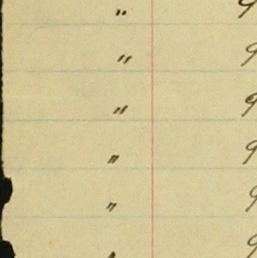 " 9
" 9
" 9
" 9
" 9
" 9